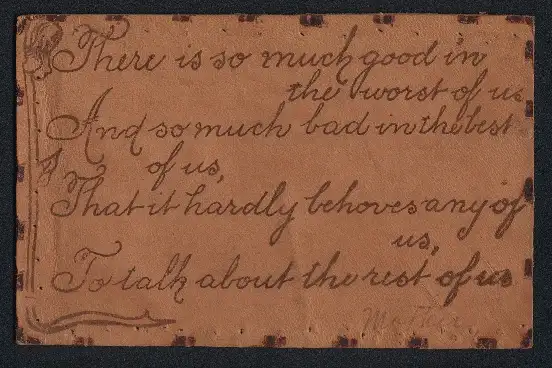 There is so much good in
the worst of us
And so much bad in the best
of us,
That it hardly behoves any of
us,
To talk about the rest of us
Mother